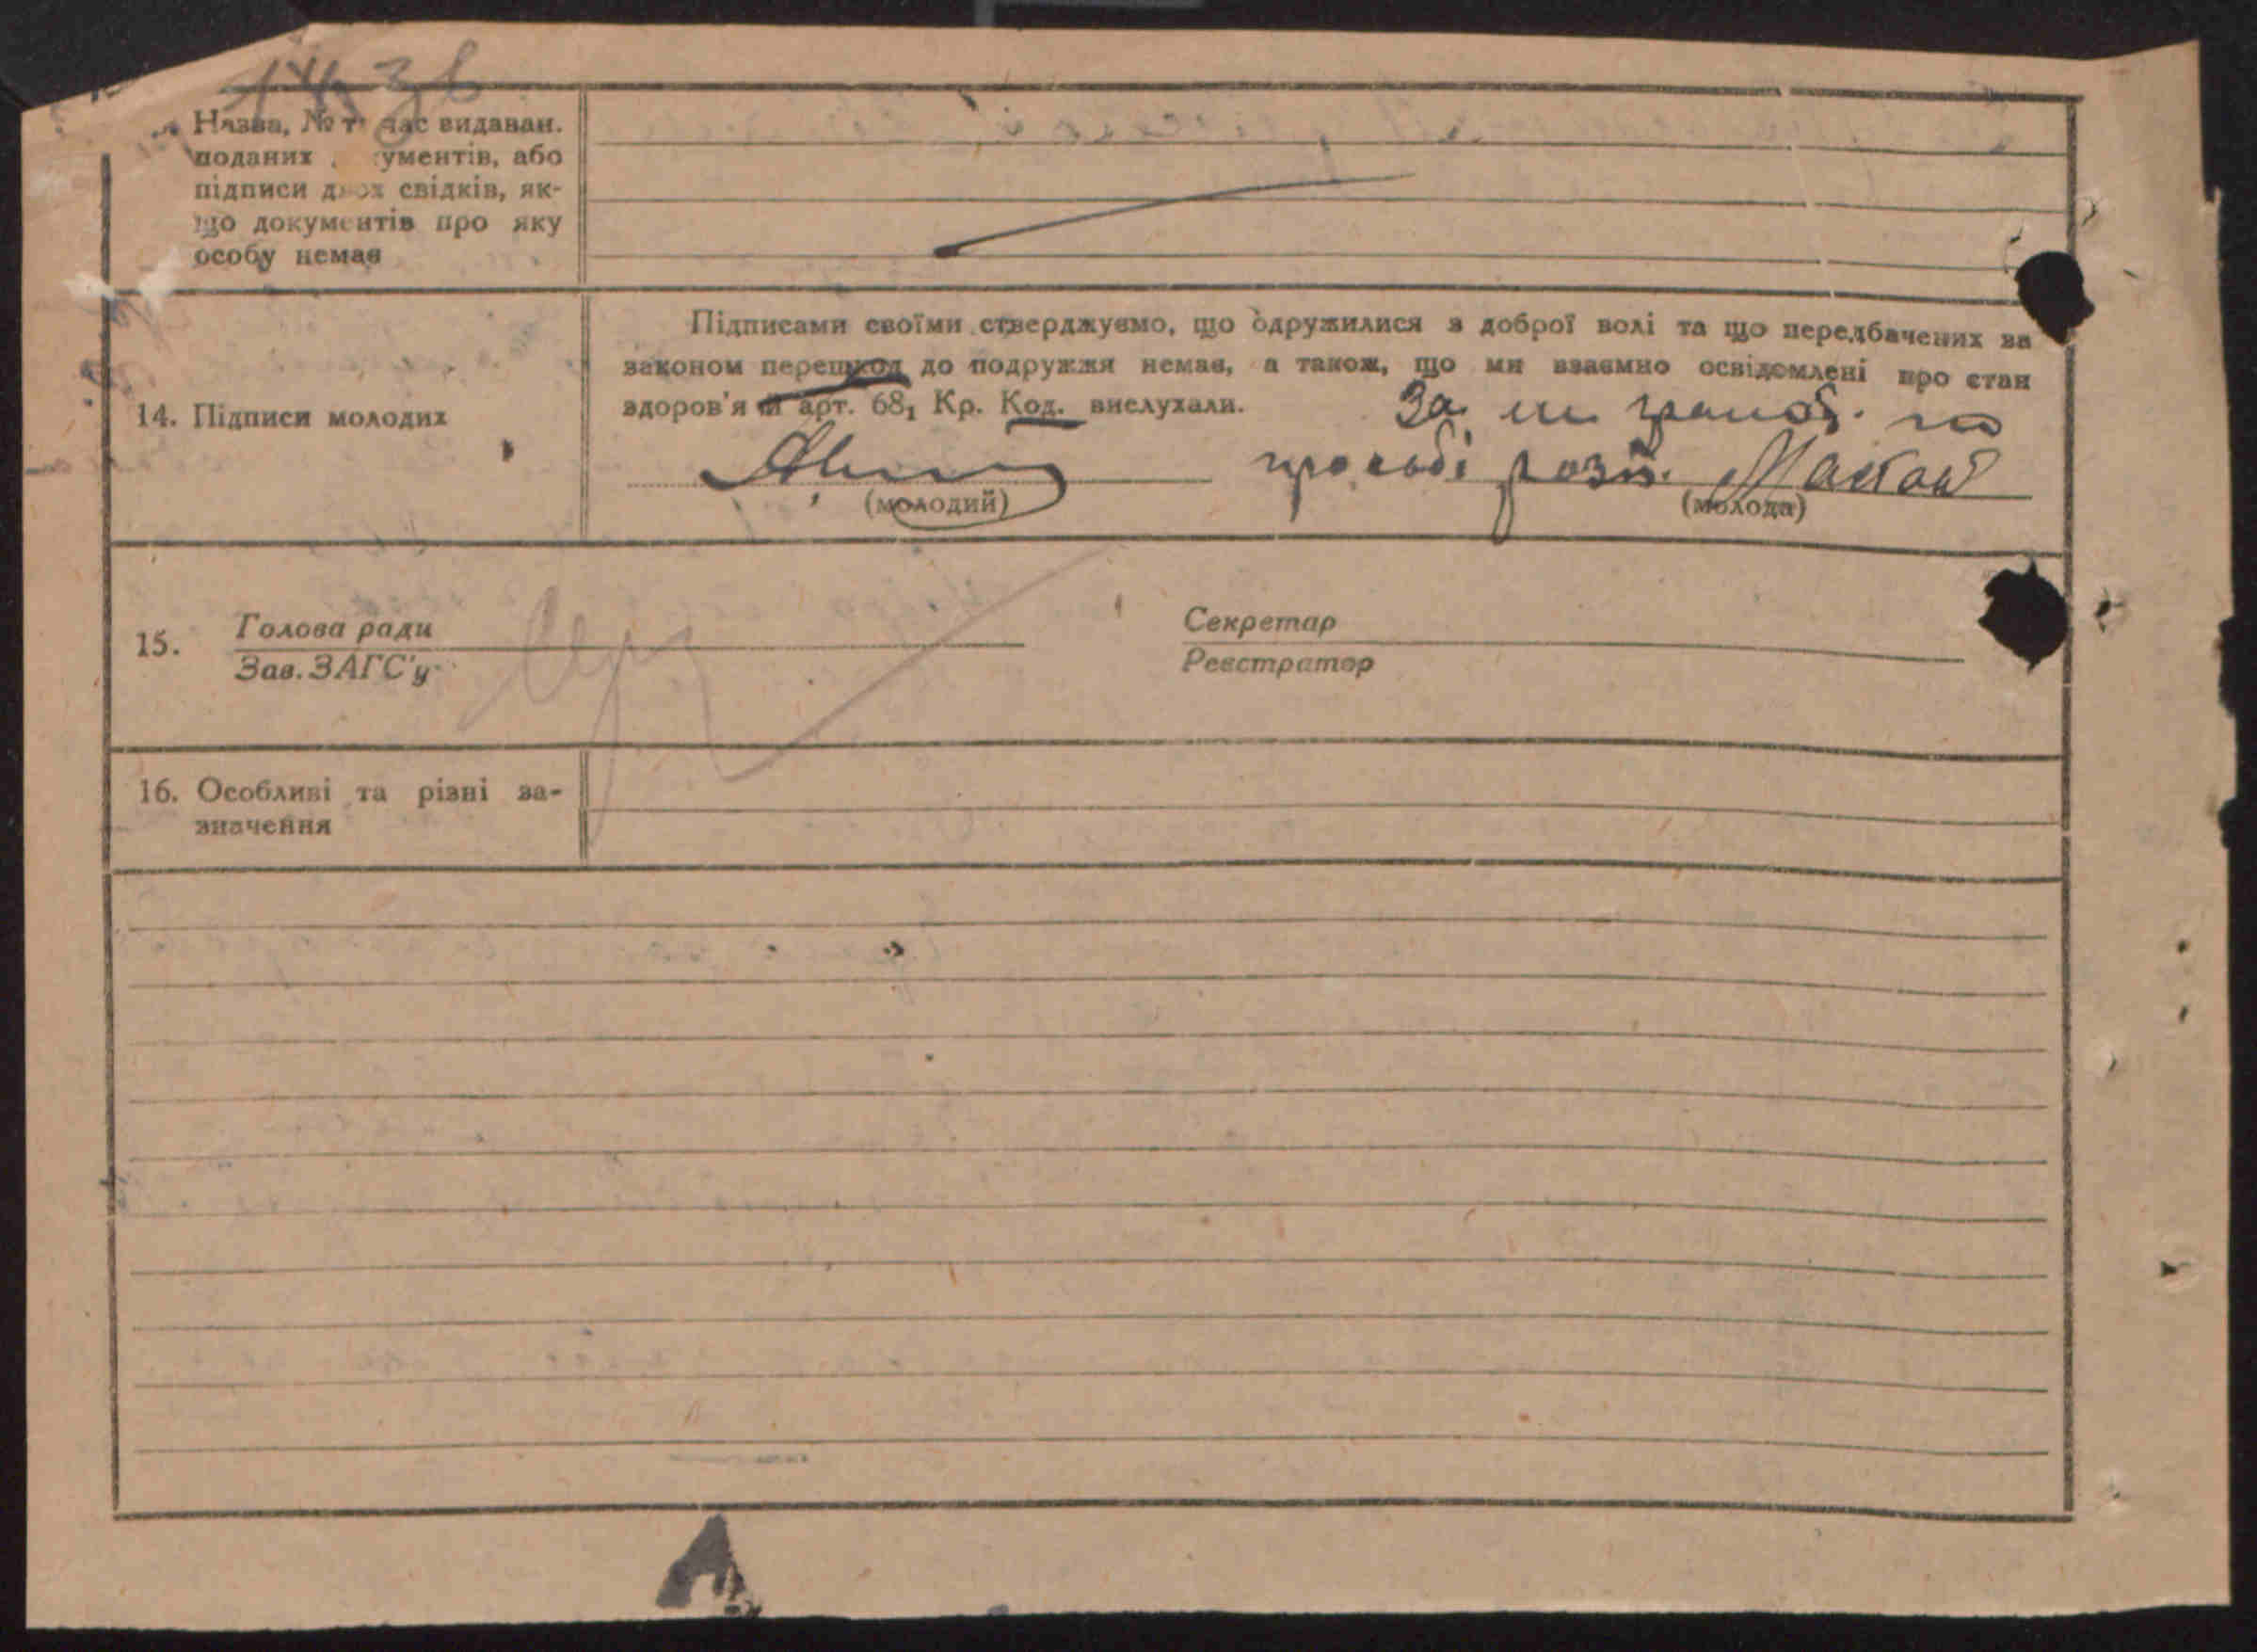 Назва, № т час видаван.
поданих ументів, або
підписи двох свідків, як-
що документів про яку
особу немає
Підписами своїми стверджуємо, що одружилися з доброї волі та що передбачених за
законом перешкод до подружжя немає, а також, що ми взаємно освідомлені про стан
здоров'я й арт. 68₁ Кр. Код. вислухали.
За не грамот. по
14. Підписи молодих
прозьбі розп.
(молодий) (молода)
15. Голова ради Секретар
Зав. ЗАГС'у Реєстратор
16. Особливі та різні за-
значення